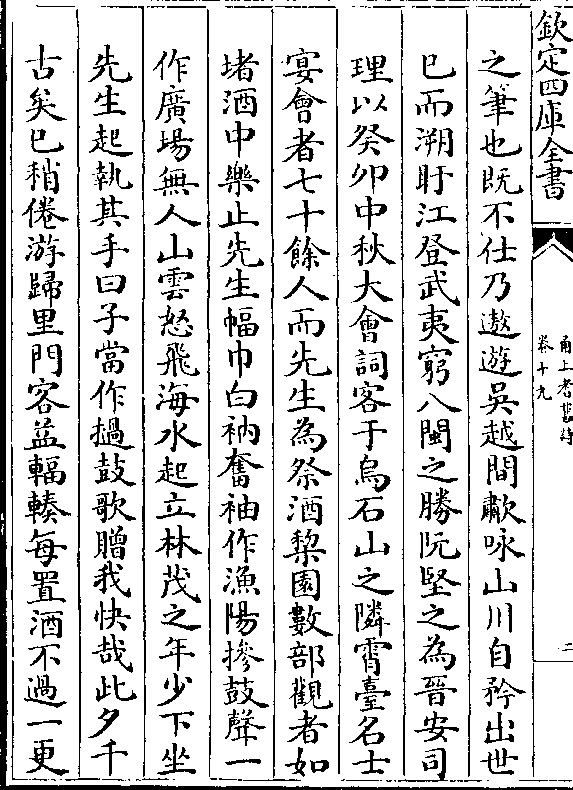 欽定四庫全書
甬上耆舊詩
卷十九
二
之筆也既不仕乃遨遊吳越間歗咏山川自矜出世
已而溯盱江登武夷窮八閩之勝阮堅之為晉安司
理以癸卯中秋大會詞客于烏石山之隣霄臺名士
宴會者七十餘人而先生為祭酒棃園數部觀者如
堵酒中樂止先生幅巾白衲奮袖作漁陽摻鼓聲一
作廣場無人山雲怒飛海水起立林茂之年少下坐
先生起執其手曰子當作撾鼓歌贈我快哉此夕千
古矣已稍倦游歸里門客益輻輳每置酒不過一更